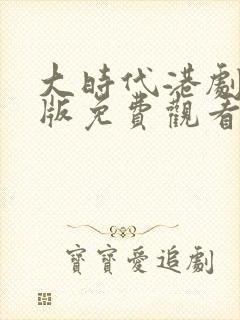 大時代港劇
版免費觀看
寶寶愛追劇